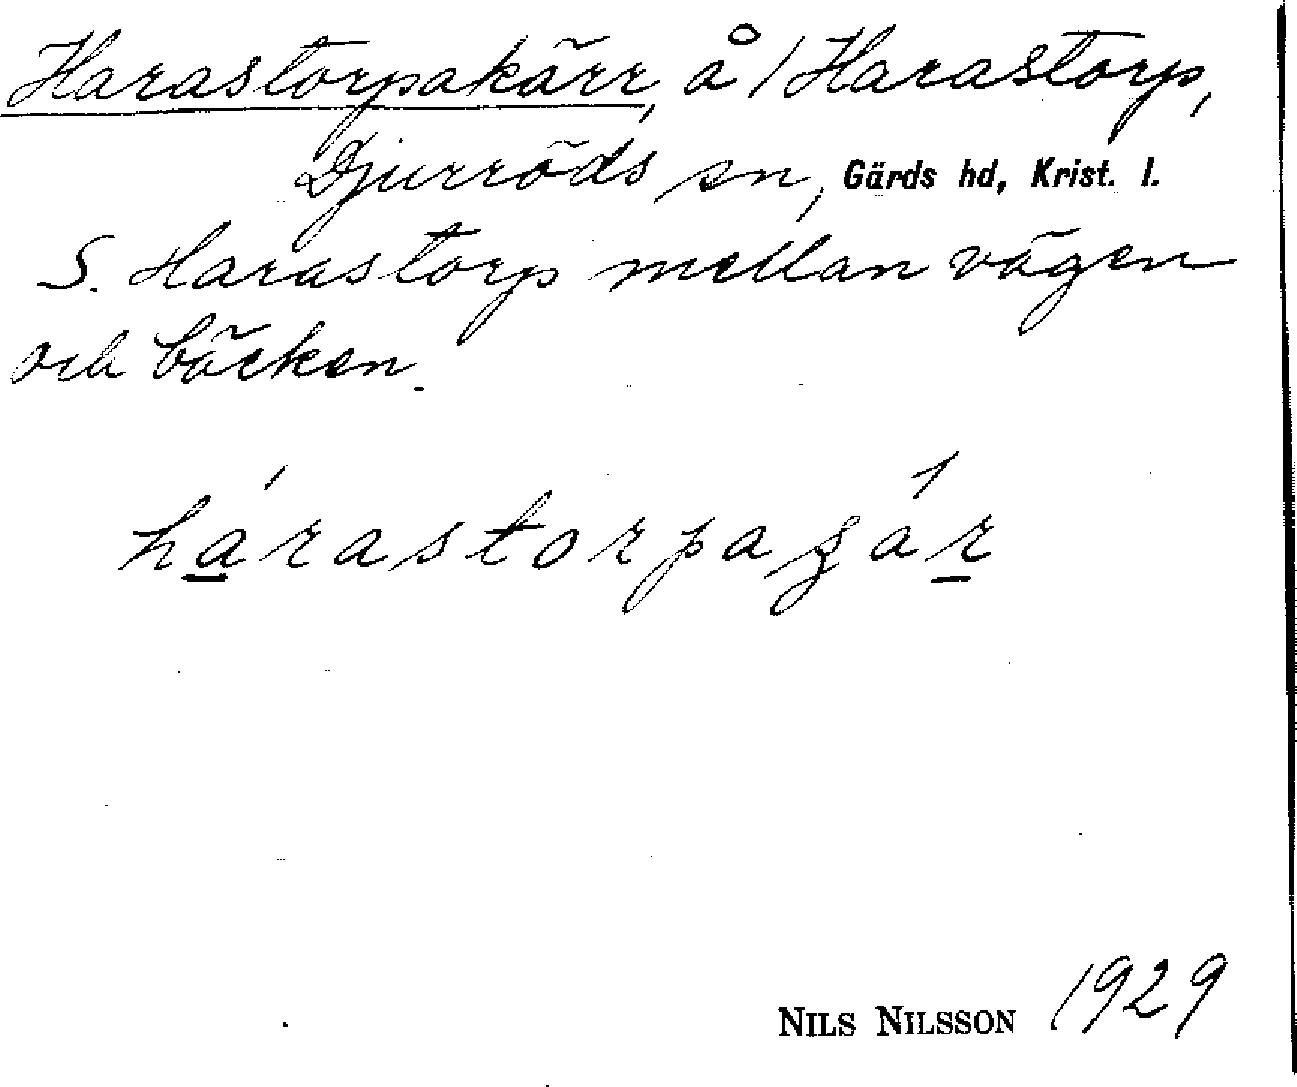 Harastorpakärr, å / Harastorp,
Djurröds sn, Gärds hd, Krist. l.
S. Harastorp mellan vägen
och bäcken.
hárastorpagár
NILS NILSSON 1929